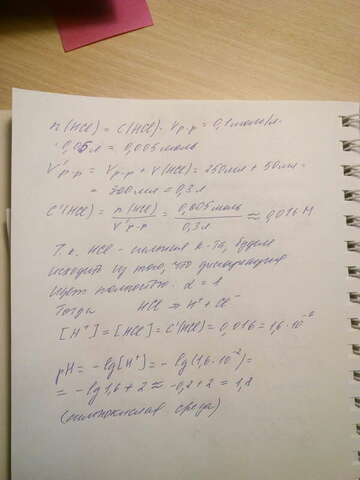 n(HCl) = C(HCl) · Vр-р = 0,1 моль/л ·
· 0,05 л = 0,005 моль
V'р-р = Vр-р + V(HCl) = 250 мл + 50 мл =
= 300 мл = 0,3 л
C'(HCl) = n(HCl) / V'р-р = 0,005 моль / 0,3 л ≈ 0,016 М
Т.к. HCl - сильная к-та, будем
исходить из того, что диссоциация
идёт полностью. α = 1
Тогда HCl → H⁺ + Cl⁻
[H⁺] = [HCl] = C'(HCl) = 0,016 = 1,6 · 10⁻²
pH = -lg[H⁺] = -lg(1,6 · 10⁻²) =
= -lg 1,6 + 2 ≈ -0,2 + 2 = 1,8
(сильнокислая среда)